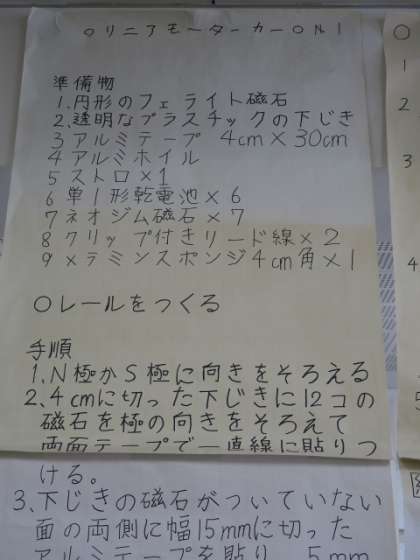 ○リニアモーターカーONI
準備物
1.円形のフェライト磁石
2.透明なプラスチックの下じき
3 アルミテープ 4cm×30cm
4 アルミホイル
5 ストロ×1
6 単1形乾電池×6
7 ネオジム磁石×7
8 クリップ付きリード線×2
9 メラミンスポンジ4cm角×1
○レールをつくる
手順
1.N極かS極に向きをそろえる
2.4cmに切った下じきに12コの
磁石を極の向きをそろえて
両面テープで一直線に貼りつ
ける。
3.下じきの磁石がついていない
面の両側に幅15mmに切った
アルミテープを貼り 5mm
○
1
2
3
4
5